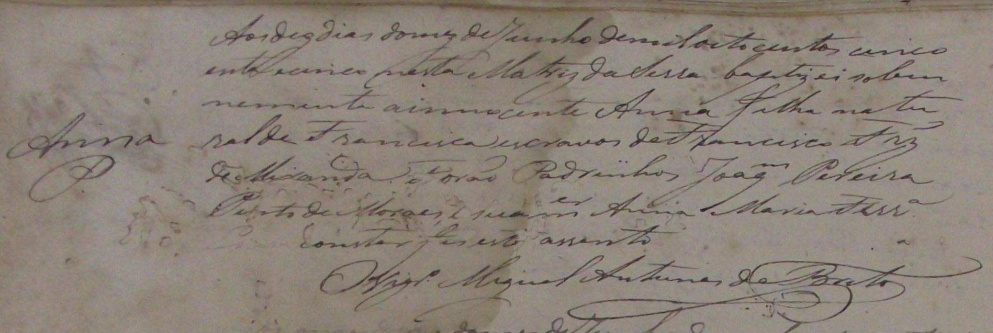 Aos dez dias do mez de Junho de mil oito centos cinco
enta e cinco nesta Matriz da Serra baptizei solem
nemente a innocente Anna filha natu
Anna
ral de Francisca escravos de Francisco Frz
P
de Miranda. Forão Padrinhos Joaqm Pereira
Pinto de Moraes e sua mer Anna Maria Ferra
constar fis este assento
Vigro Miguel Antunes de Brito